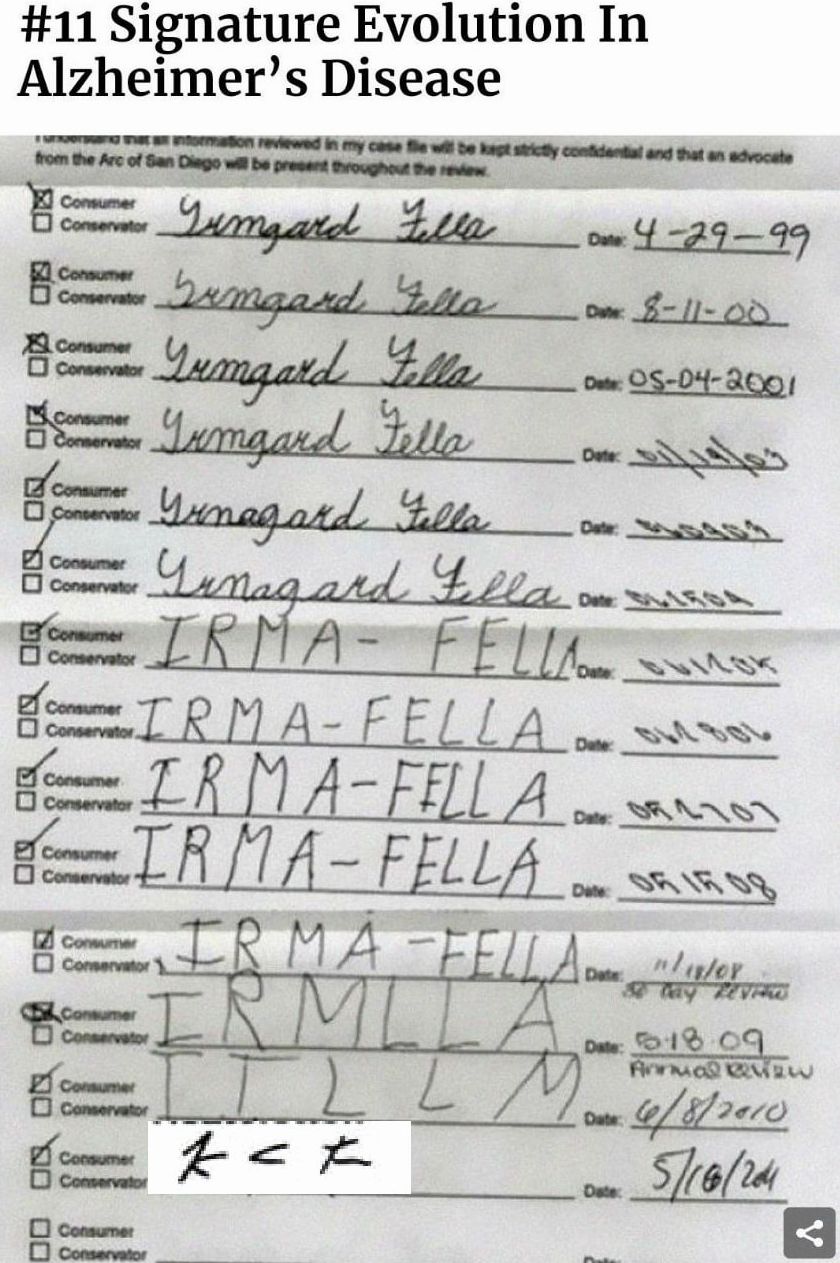 #11 Signature Evolution In
Alzheimer's Disease
I understand that all information reviewed in my case file will be kept strictly confidential and that an advocate
from the Arc of San Diego will be present throughout the review.
Consumer
Conservator Yrmgard Fella Date: 4-29-99
Consumer
Conservator Yrmgard Fella Date: 8-11-00
Consumer
Conservator Yrmgard Fella Date: 05-04-2001
Consumer
Conservator Yrmgard Fella Date:
Consumer
Conservator Yrnagard Fella Date:
Consumer
Conservator Yrnagard Fella Date:
Consumer
Conservator IRMA- FELLA Date:
Consumer
Conservator IRMA-FELLA Date: 061806
Consumer
Conservator IRMA-FELLA Date:
Consumer
Conservator IRMA-FELLA Date: 051508
Consumer
Conservator IRMA-FELLA Date: 11/18/08
30 Day Review
Consumer
Conservator IRMLLA Date: 5·18·09
Annual Review
Consumer
Conservator IILLM Date: 6/8/2010
Consumer
Conservator Date:
Consumer
Conservator Date: